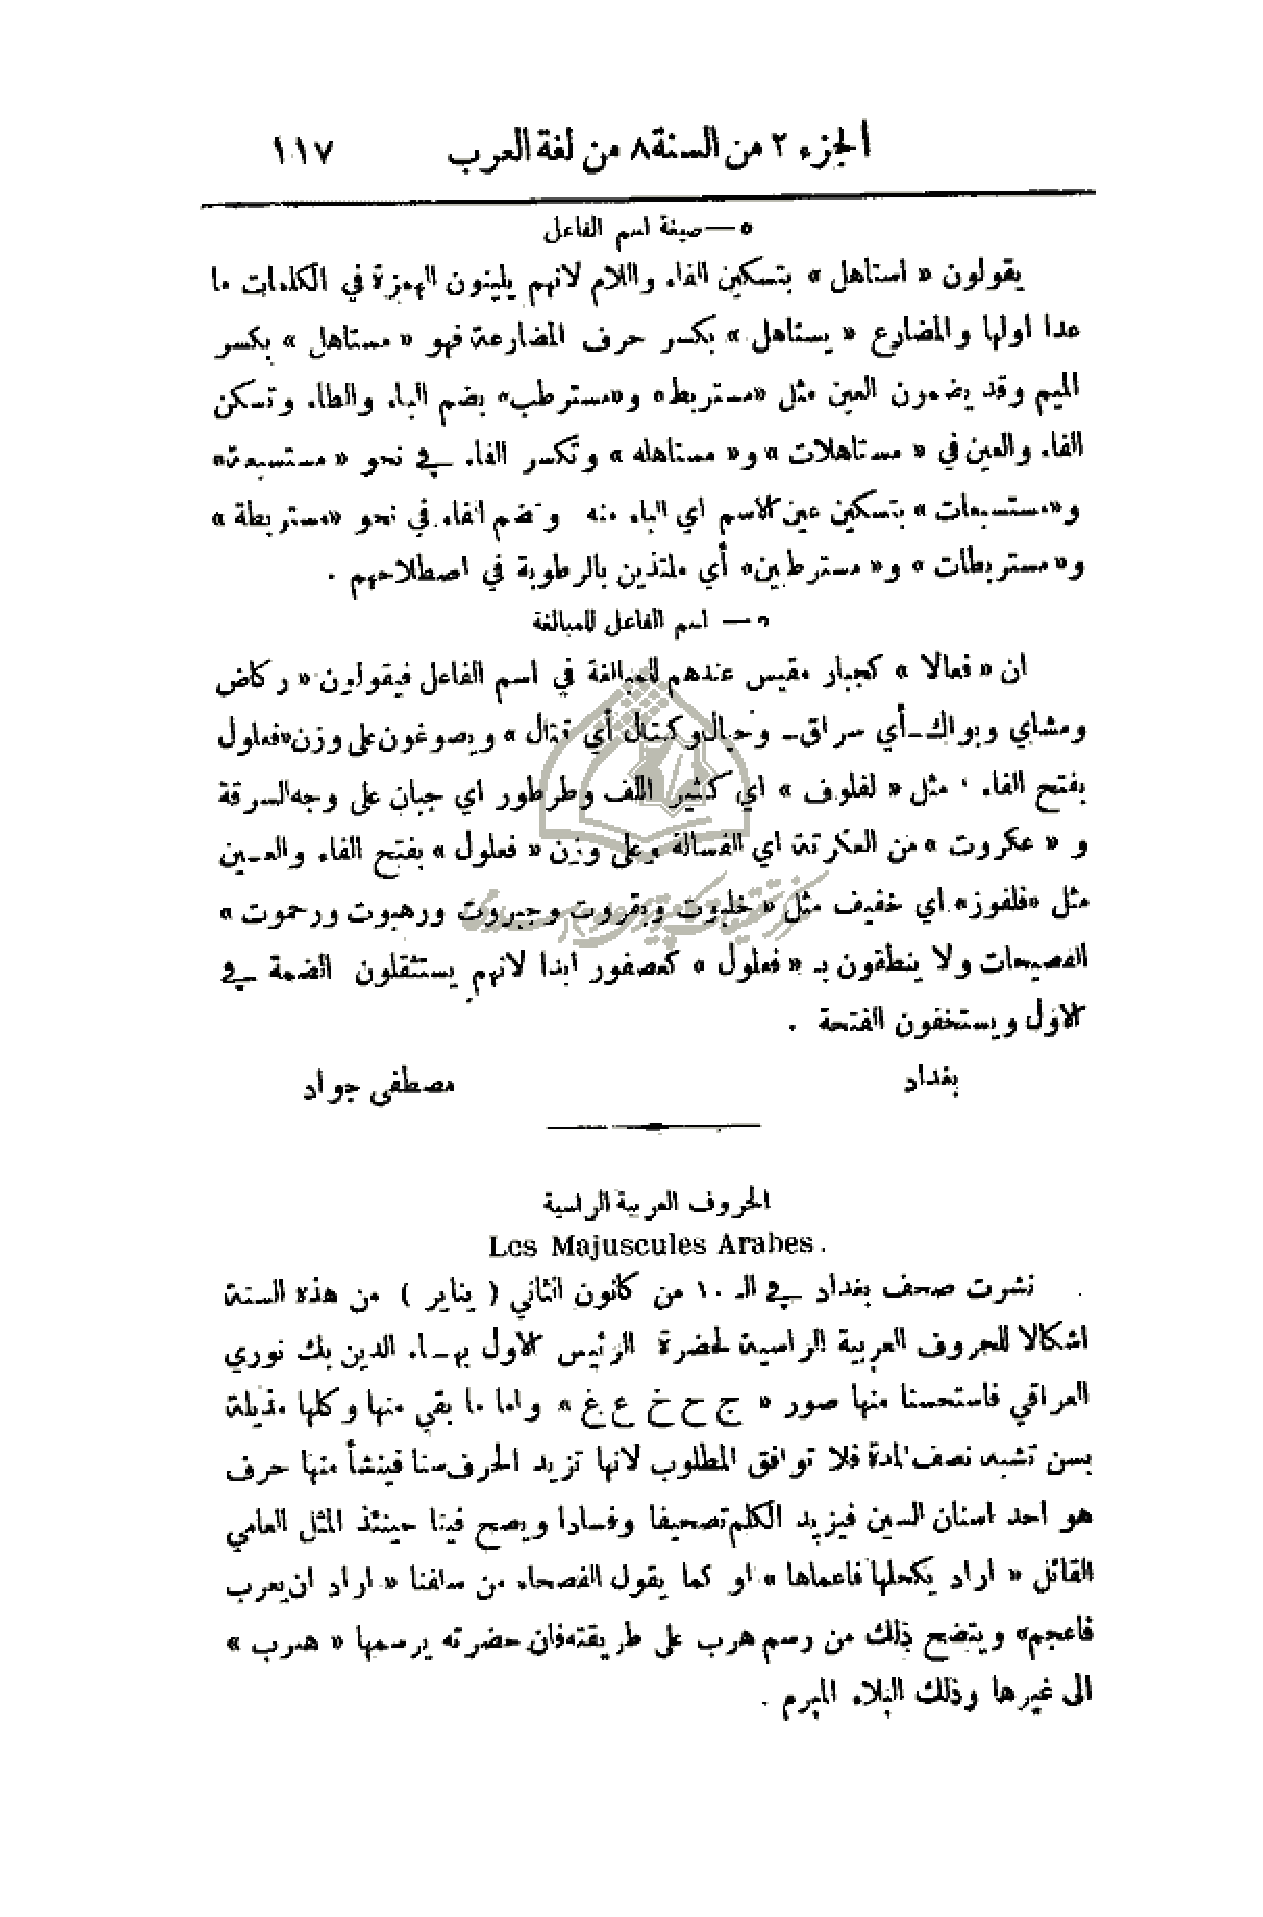 الجزء ٢ من السنة ٨ من لغة العرب ١١٧
٥ — صيغة اسم الفاعل
يقولون « استاهل » بتسكين الفاء واللام لانهم يلينون الهمزة في الكلمات ما
عدا اولها والمضارع « يستاهل » بكسر حرف المضارعة فهو « مستاهل » بكسر
الميم وقد يضمون العين مثل «مستربط» و«مسترطب» بضم الباء والطاء وتسكن
الفاء والعين في « مستاهلات » و« مستاهله » وتكسر الفاء في نحو « مستسبعة»
و«مستسبعات » بتسكين عين الاسم اي الباء منه وتضم الفاء في نحو «مستربطة »
و« مستربطات» و« مسترطبين» أي ملتذين بالرطوبة في اصطلاحهم .
— اسم الفاعل للمبالغة
ان « فعالا » كجبار مقيس عندهم للمبالغة في اسم الفاعل فيقولون « ركاض
ومشاي وبواك ـ أي سراق ـ وحيال وكتال أي قتال » ويصوغون على وزن «فعلول
بفتح الفاء ، مثل « لفلوف » اي كثير اللف وطرطور اي جبان على وجه السرقة
و « عكروت » من العكرتة اي الفسالة وعلى وزن « فعلول » بفتح الفاء والعـين
مثل «فلفوز» اي خفيف مثل « خلبوت وبقروت وجبروت ورهبوت ورحموت »
الفصيحات ولا ينطقون بـ « فعلول » كعصفور ابدا لانهم يستثقلون الضمة في
الاول ويستخفون الفتحة .
بغداد مصطفى جواد
الحروف العربية الراسية
Les Majuscules Arabes .
نشرت صحف بغداد في الـ ١٠ من كانون الثاني ( يناير ) من هذه السنة
اشكالا للحروف العربية الراسية لحضرة الرئيس الاول بهـاء الدين بك نوري
العراقي فاستحسنا منها صور « ج ح خ ع غ » واما ما بقي منها وكلها مذيلة
بسن تشبه نصف المدة فلا توافق المطلوب لانها تزيد الحرف سنا فينشأ منها حرف
هو احد اسنان السين فيزيد الكلم تصحيفا وفسادا ويصح فينا حينئذ المثل العامي
القائل « اراد يكحلها فاعماها » او كما يقول الفصحاء من سلفنا « اراد ان يعرب
فاعجم» ويتضح ذلك من رسم هرب على طريقته فان حضرته يرسمها « هىرب »
الى غيرها وذلك البلاء المبرم .